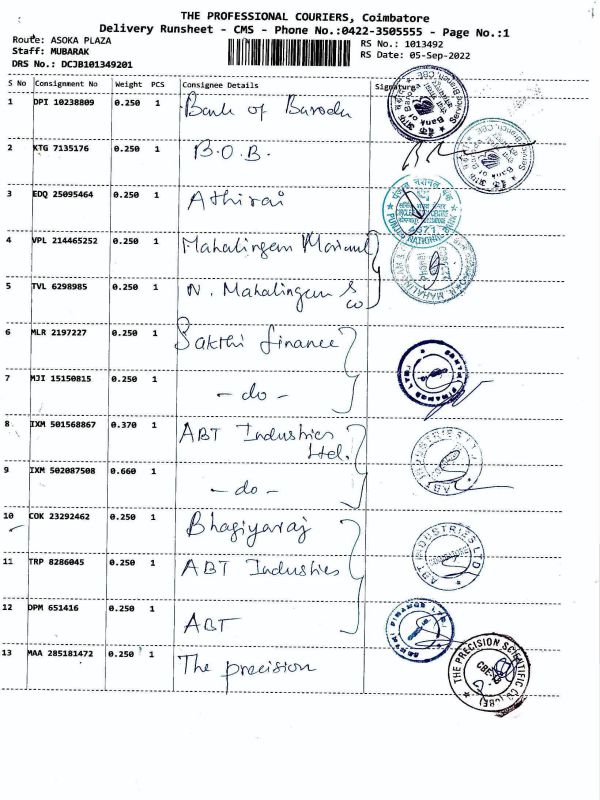 THE PROFESSIONAL COURIERS, Coimbatore
Delivery Runsheet - CMS - Phone No.:0422-3505555 - Page No.:1
Route: ASOKA PLAZA
Staff: MUBARAK
DRS No.: DCJB101349201
RS No.: 1013492
RS Date: 05-Sep-2022
S No Consignment No Weight PCS Consignee Details Signature
1 DPI 10238809 0.250 1 Bank of Baroda
2 KTG 7135176 0.250 1 B.O.B.
3 EDQ 25095464 0.250 1 Athirai
4 VPL 214465252 0.250 1 Mahalingam
5 TVL 6298985 1 0.250 1 N. Mahalingam & co
6 MLR 2197227 0.250 1 Sakthi finance
7 MJI 15150815 0.250 1 - do -
8 IXM 501568867 0.370 1 ABT Industries
Ltd.
9 IXM 502087508 0.660 1 - do -
10 COK 23292462 0.250 1 Bhagiyaraj
11 TRP 8286045 0.250 1 ABT Industries
12 DPM 651416 0.250 1 ABT
13 MAA 285181472 0.250 1 The precision
Bank of
PUNJAB NATIONAL BANK
ABT INDUSTRIES LTD.
ABT INDUSTRIES LTD.
THE PRECISION SCIENTIFIC CO (CBE)